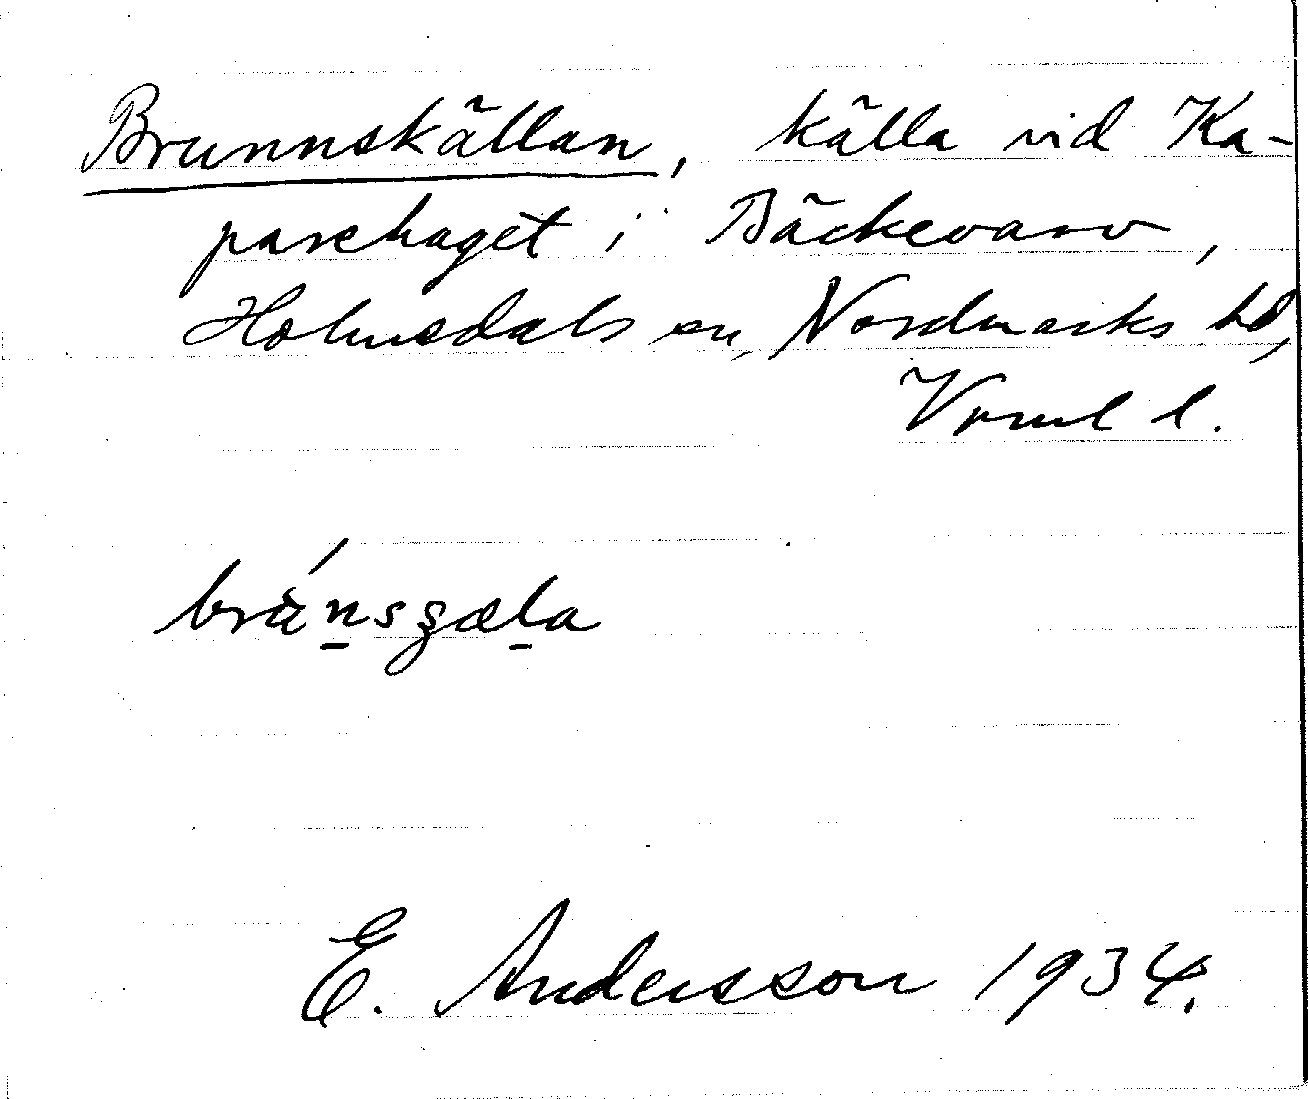 Brunnskällan, källa vid Ka-
parehaget i Bäckevarv,
Holmedals sn, Nordmarks hd,
Vrml l.
brànsgæla
E. Andersson 1934.